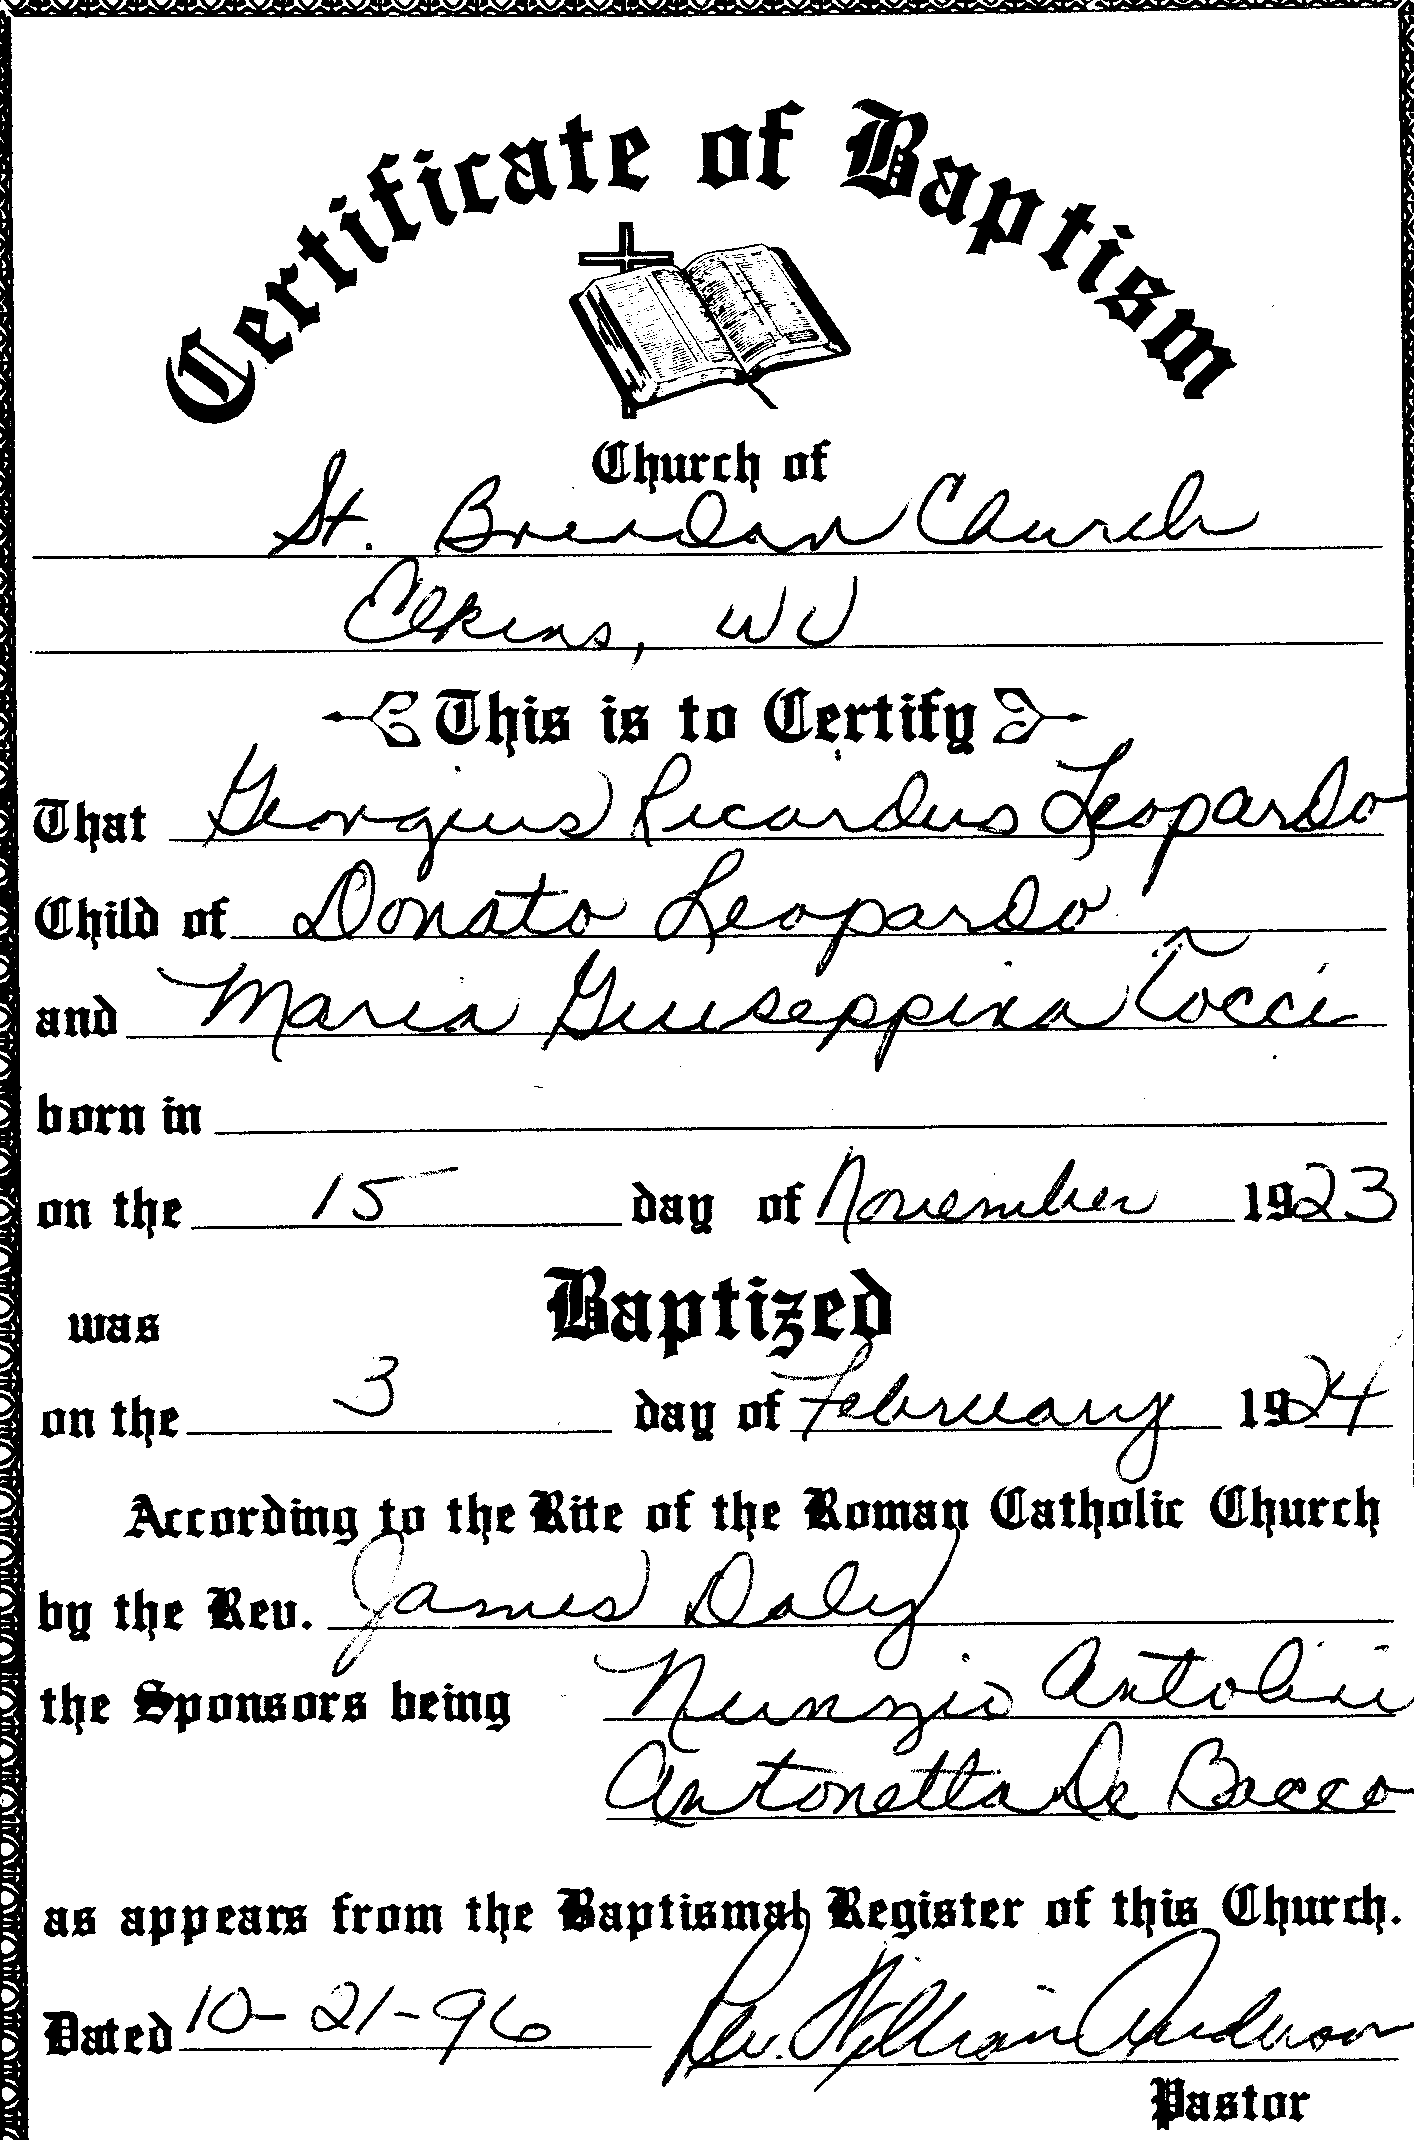 Certificate of Baptism
Church of
St. Brendan Church
Elkins, WV
This is to Certify
That Georgius Ricardus Leopardo
Child of Donato Leopardo
and Maria Giuseppina Tocci
born in
on the 15 day of November 1923
was Baptized
on the 3 day of February 1924
According to the Rite of the Roman Catholic Church
by the Rev. James Daly
the Sponsors being Nunzio Antolini
Antonetta De Bacco
as appears from the Baptismal Register of this Church.
Dated 10-21-96 Rev. William Anderson
Pastor